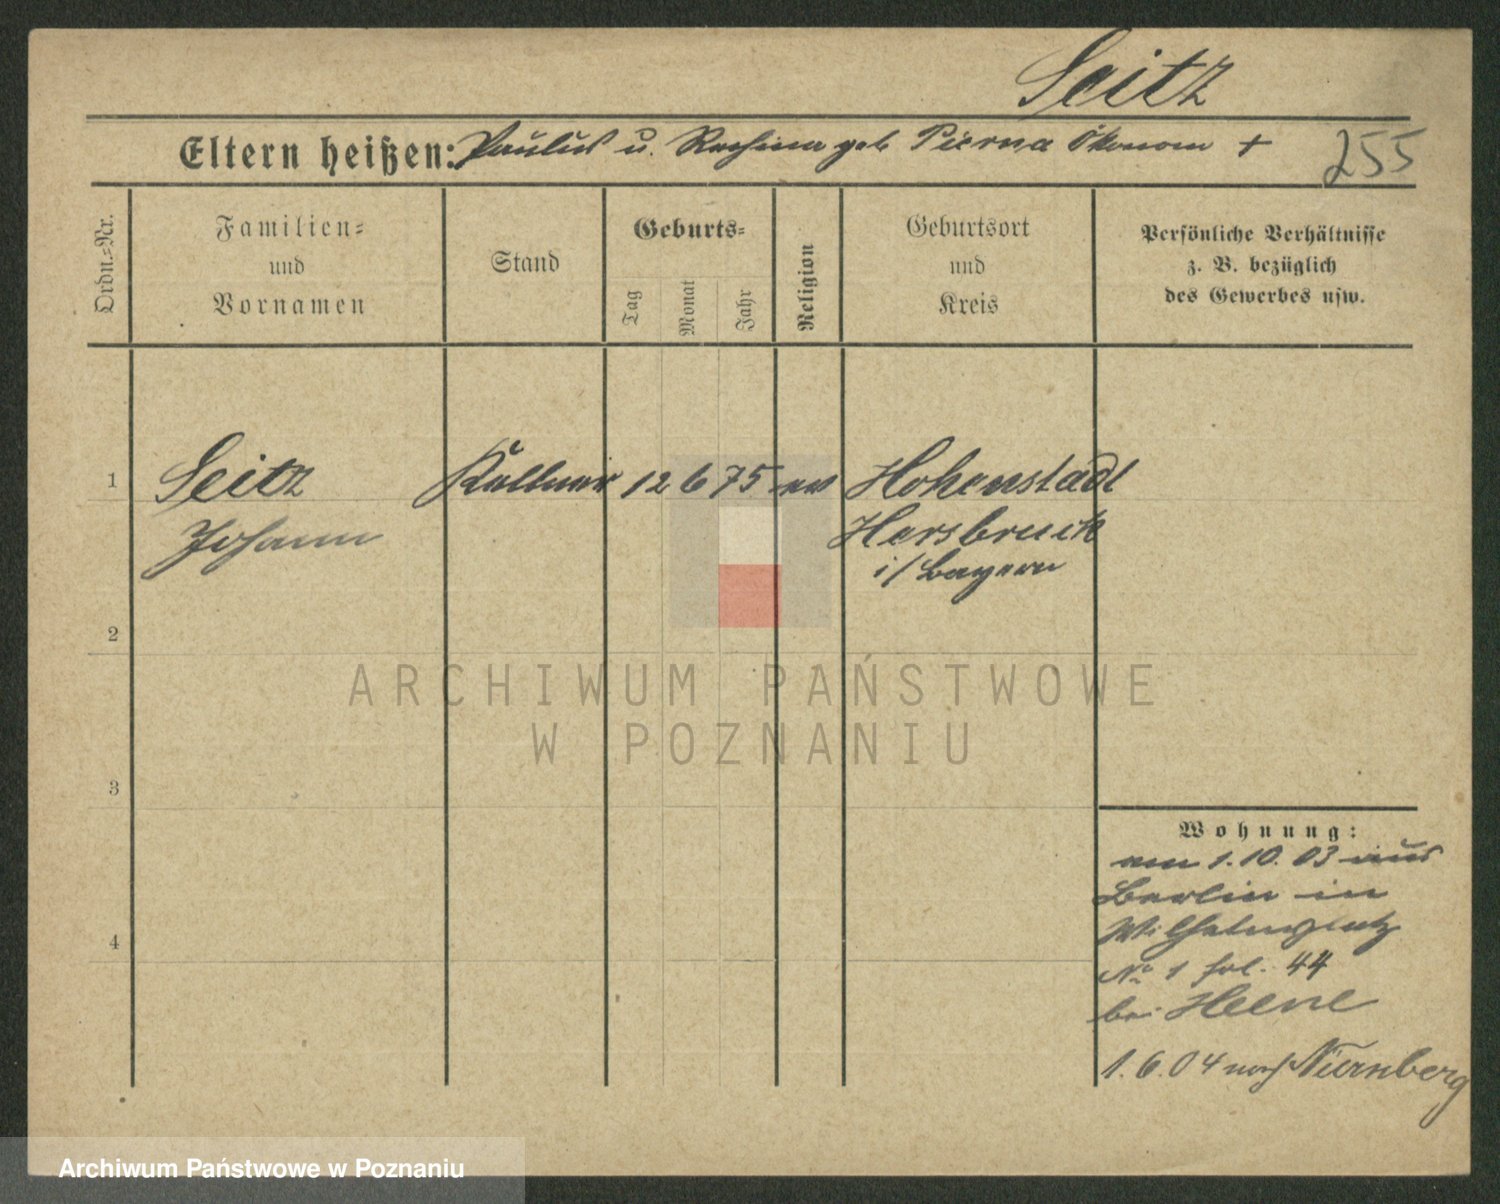 Seitz
Eltern heißen: Paulus u. Rosina geb Pierna Ökonom +
255
Ordn.=Nr.
Familien=
und
Vornamen
Stand
Geburts=
Tag
Monat
Jahr
Religion
Geburtsort
und
Kreis
Persönliche Verhältnisse
z. B. bezüglich
des Gewerbes usw.
1
Seitz Kellner 12 6 75 ev Hohenstadt
Johann Hersbruck
i/ Bayern
2
ARCHIWUM PAŃSTWOWE
W POZNANIU
3
Wohnung:
am 1.10.03 aus
Berlin in
Wilhelmsplatz
4
No 1 fol. 44
bei Heene
1.6.04 nach Nürnberg
Archiwum Państwowe w Poznaniu